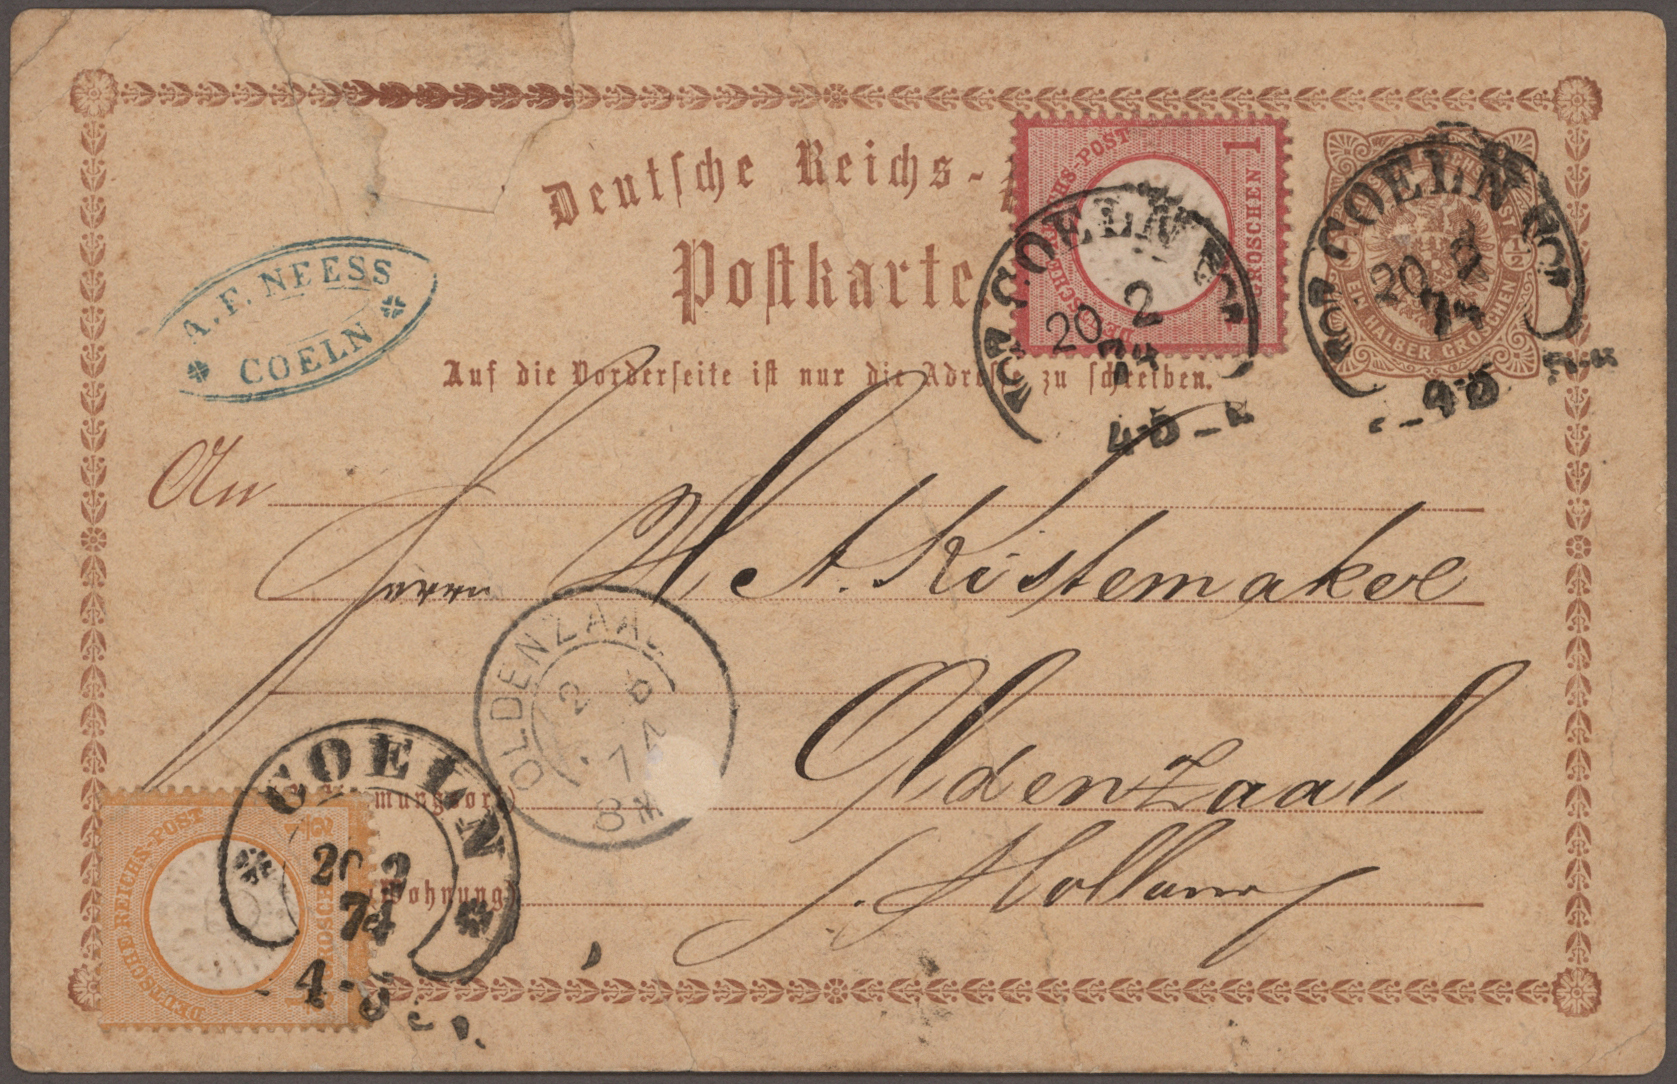 Deutsche Reichs-
Postkarte.
Auf die Vorderseite ist nur die Adresse zu schreiben.
DEUTSCHE REICHS-POST
1 GROSCHEN 1
COELN
20 2
74
4-5
1/2
EIN HALBER GROSCHEN
COELN
20 2
74
4-5
A. F. NEESS
COELN
An
Herrn H A. Kistemaker
OLDENZAAL
2
74
8M
Oldenzaal
i. Holland
(Wohnung)
DEUTSCHE REICHS-POST
1/2 GROSCHEN 1/2
COELN
20 2
74
4-5